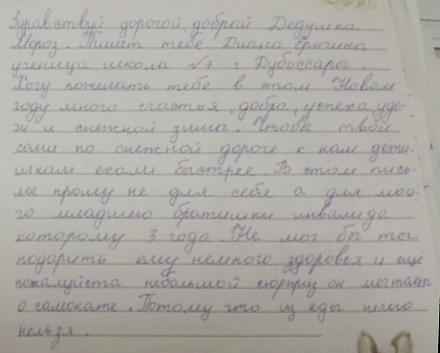 Здравствуй дорогой, добрый Дедушка
Мороз. Пишет тебе Диана
ученица школа №7 г Дубоссары.
Хочу пожелать тебе в этом Новом
году много счастья, добра, успеха, уда-
чи и снежной зимы. Чтобы твои
сани по снежной дороге к нам дети-
шкам ехали быстрее. В этом пись-
ме прошу не для себя а для мое-
го младшего братишки инвалида
которому 3 года. Не мог бы ты
подарить ему немного здоровья и ещё
пожалуйста небольшой сюрприз он мечтает
о самокате. Потому что из еды нечего
нельзя.